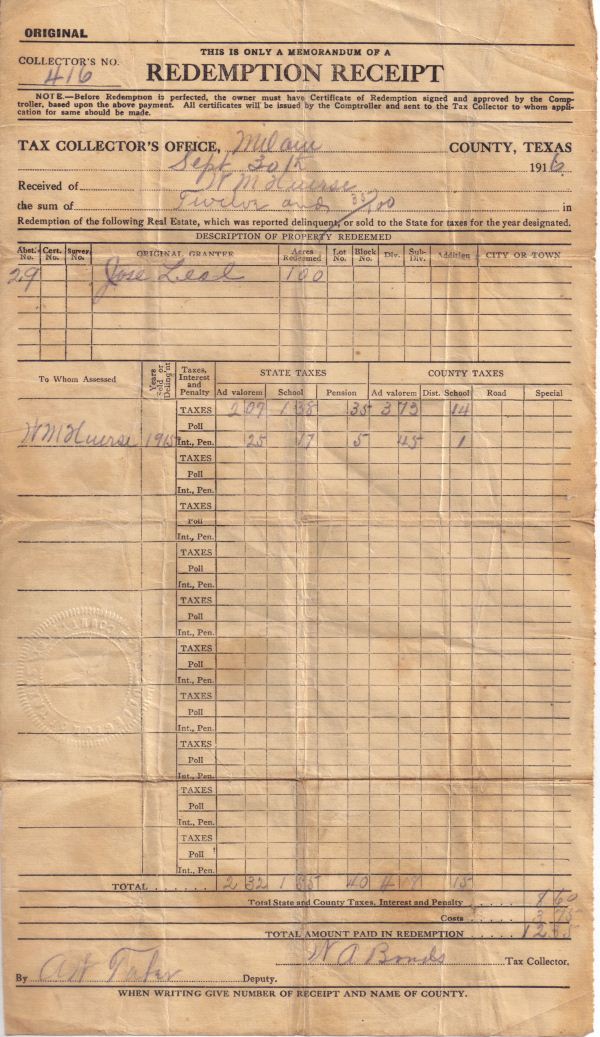 ORIGINAL
THIS IS ONLY A MEMORANDUM OF A
COLLECTOR'S NO.
416
REDEMPTION RECEIPT
NOTE.—Before Redemption is perfected, the owner must have Certificate of Redemption signed and approved by the Comp-
troller, based upon the above payment. All certificates will be issued by the Comptroller and sent to the Tax Collector to whom appli-
cation for same should be made.
TAX COLLECTOR'S OFFICE, Milam COUNTY, TEXAS
Sept 30th 1916
Received of W M
the sum of Twelve and 35/100 in
Redemption of the following Real Estate, which was reported delinquent, or sold to the State for taxes for the year designated.
DESCRIPTION OF PROPERTY REDEEMED
Abst. No. Cert. No. Survey No. ORIGINAL GRANTEE Acres Redeemed Lot No. Block No. Div. Sub-Div. Addition CITY OR TOWN
29 Jose Leal 100
To Whom Assessed Years Sold or Delinq'nt Taxes, Interest and Penalty STATE TAXES COUNTY TAXES
Ad valorem School Pension Ad valorem Dist. School Road Special
TAXES 2 07 1 38 35 3 73 14
Poll
W M 1915 Int., Pen. 25 17 5 45 1
TAXES
Poll
Int., Pen.
TAXES
Poll
Int., Pen.
TAXES
Poll
Int., Pen.
TAXES
Poll
Int., Pen.
TAXES
Poll
Int., Pen.
TAXES
Poll
Int., Pen.
TAXES
Poll
Int., Pen.
TAXES
Poll
Int., Pen.
TAXES
Poll
Int., Pen.
TOTAL 2 32 1 55 40 4 18 15
Total State and County Taxes, Interest and Penalty 8 60
Costs 3 75
TOTAL AMOUNT PAID IN REDEMPTION 12 35
W A Bonds Tax Collector.
By Deputy.
WHEN WRITING GIVE NUMBER OF RECEIPT AND NAME OF COUNTY.